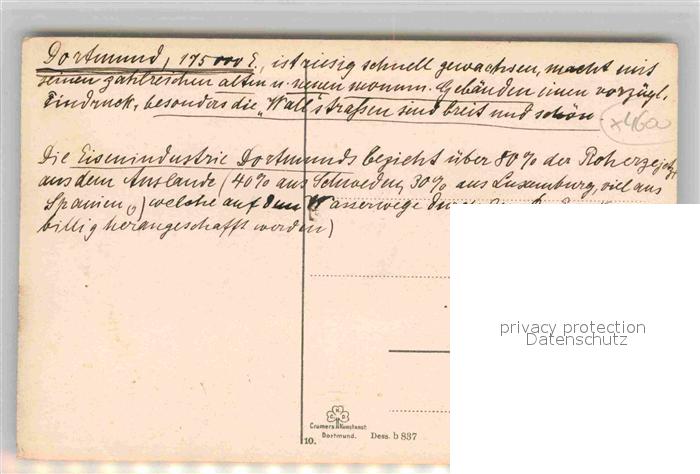 Dortmund, 175 000 E., ist riesig schnell gewachsen, macht mit
seinen zahlreichen alten u. neuen monum. Gebäuden einen vorzügl.
Eindruck, besonders die „Wall"strassen sind breit und schön.
x460
Die Eisenindustrie Dortmunds bezieht über 80% der Roherze jetzt
aus dem Auslande (40% aus Schweden, 30% aus Luxemburg, viel aus
Spanien,) welche auf dem Wasserwege
billig herangeschafft werden)
privacy protection
Datenschutz
C K D
Cramers Kunstanst.
Dortmund.
10.
Dess. b 837